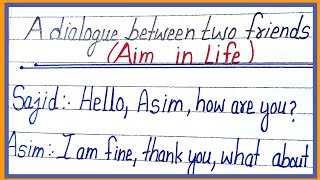 A dialogue between two friends
(Aim in Life)
Sajid:- Hello, Asim, how are you?
Asim:- I am fine, thank you, what about